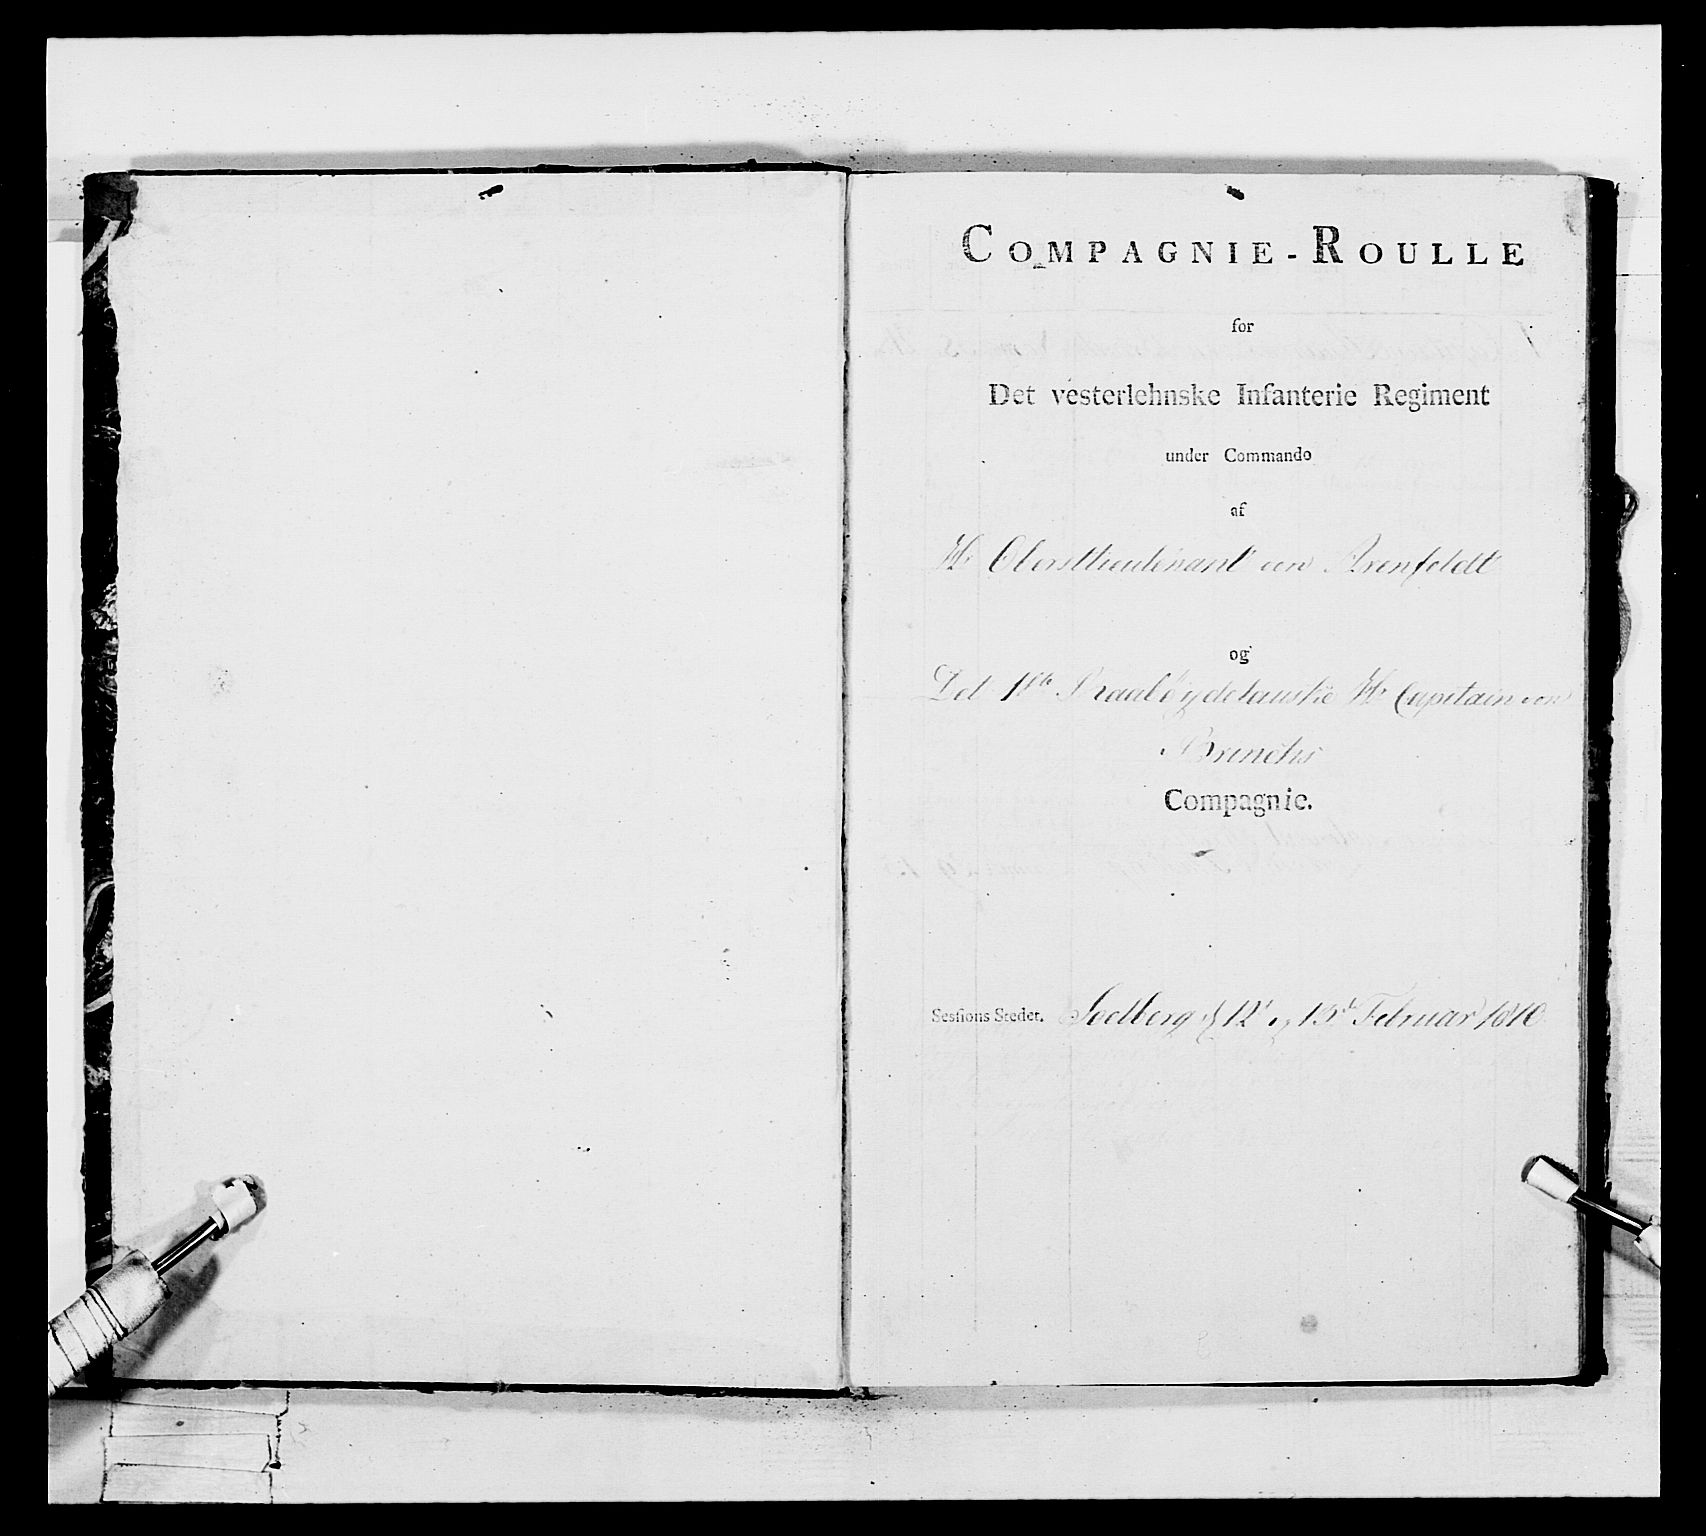 COMPAGNIE-ROULLE
for
Det vesterlehnske Infanterie Regiment
under Commando
af
Hr Oberstlieutenant von Arenfeldt
og
Det 1ste Raabøydelauske Hr Capitain von
Brinchs
Compagnie.
Sessions Stedet. Soelberg d 12t og 13d Februar 1810